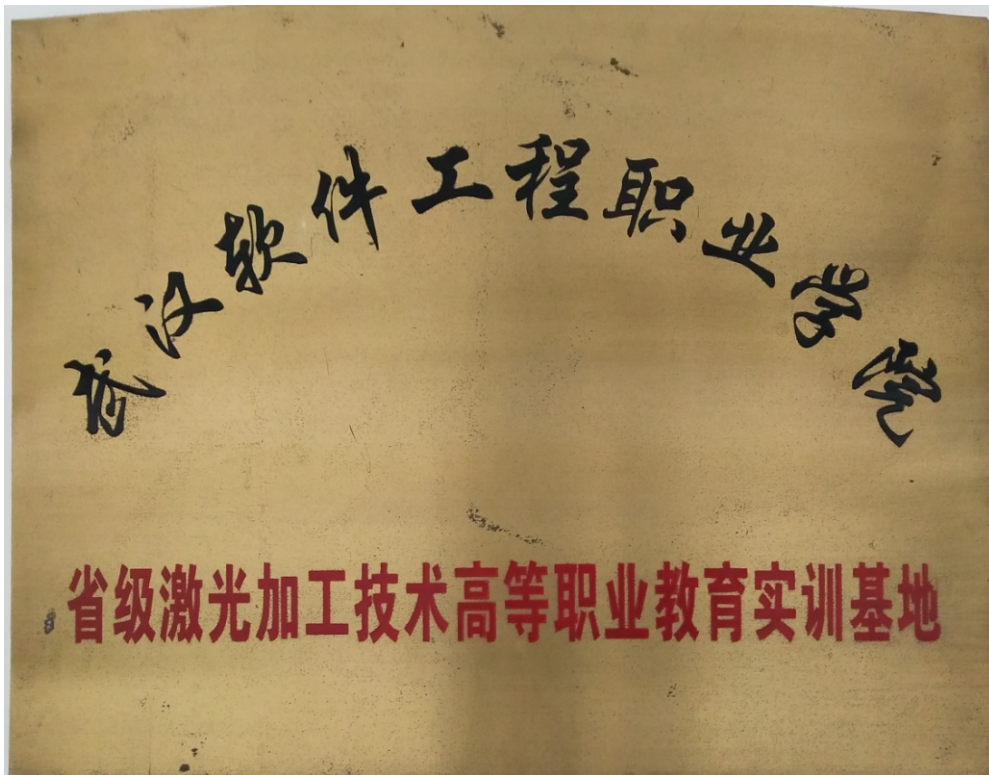 武汉软件工程职业学院
省级激光加工技术高等职业教育实训基地